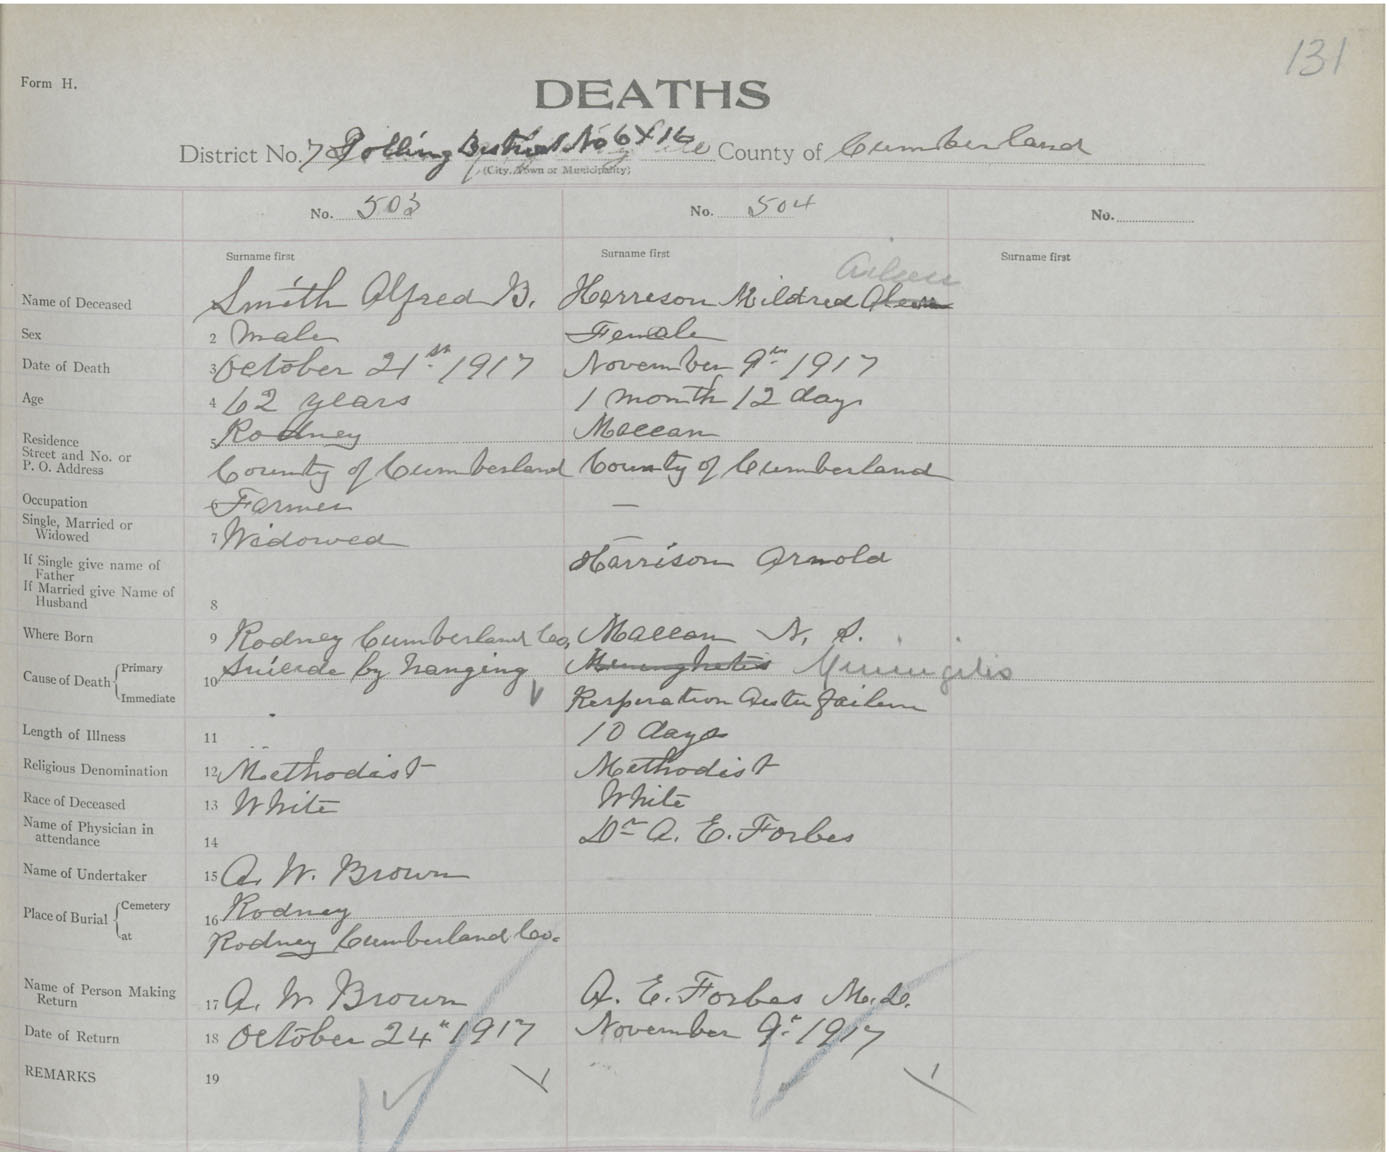 131
Form H.
DEATHS
District No. 7 Polling District No 6 & 16 County of Cumberland
(City, Town or Municipality)
No. 503 No. 504 No.
Surname first Surname first Surname first
Aileen
Name of Deceased Smith Alfred B. Harreson Mildred
Sex 2 Male Female
Date of Death 3 October 21st 1917 November 9th 1917
Age 4 62 years 1 month 12 days
Residence 5 Rodney Maccan
Street and No. or
P. O. Address County of Cumberland County of Cumberland
Occupation 6 Farmer —
Single, Married or
Widowed 7 Widowed —
If Single give name of
Father Harrison Arnold
If Married give Name of
Husband 8
Where Born 9 Rodney Cumberland Co, Maccan N. S.
Cause of Death { Primary 10 Suicide by hanging Meninghetis Meningitis
Immediate Resperation Failem
Length of Illness 11 10 days
Religious Denomination 12 Methodist Methodist
Race of Deceased 13 White White
Name of Physician in
attendance 14 Dr A. E. Forbes
Name of Undertaker 15 A. W. Brown
Place of Burial { Cemetery 16 Rodney
at Rodney Cumberland Co.
Name of Person Making
Return 17 A. W Brown A. E. Forbes M.D.
Date of Return 18 October 24th 1917 November 9th 1917
REMARKS 19